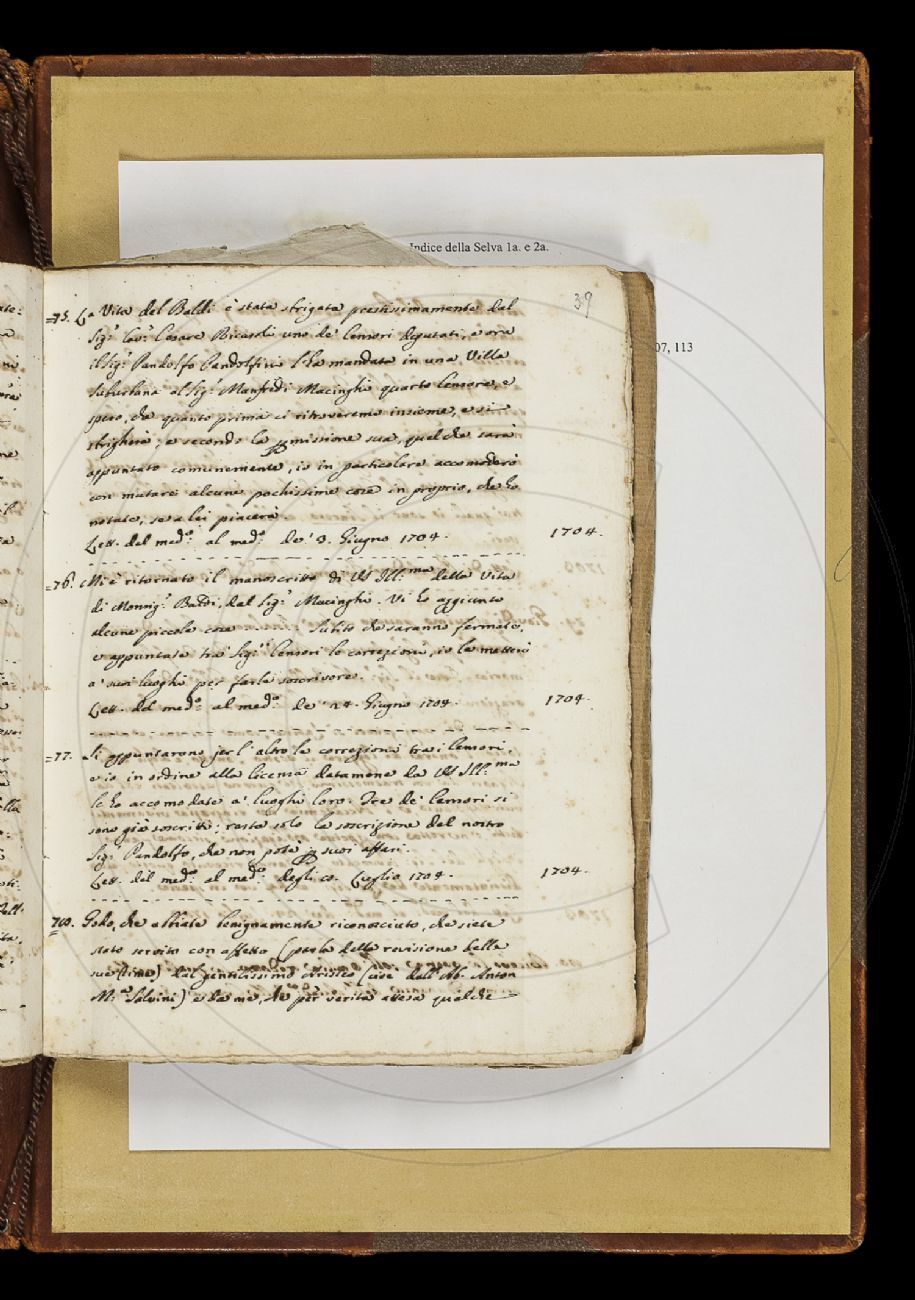 Indice della Selva 1a. e 2a.
07, 113
39
=75. La Vita del Baldi è stata strigata prestissimamente dal
Sig.r Cav.r Cesare Ricasoli uno de' Censori deputati, e ora
il Sig.r Pandolfo Pandolfini l'ha mandata in una Villa
suburbana al Sig.r Manfredi Macinghi quarto Censore, e
spero, che quanto prima ci ritroveremo insieme, e si
strigherà; e secondo la permissione sua, quel che sarà
appuntato comunemente, io in particolare accomoderò
con mutarci alcune pochissime cose in proprio, che ho
notate, se a lei piacerà.
Lett. del med.o al med.o de' 3. Giugno 1704. 1704.
=76. Mi è ritornato il manoscritto di VS Ill.ma della Vita
di Monsig.r Baldi, dal Sig.r Macinghi. Vi ho aggiunte
alcune piccole cose - - - Subito che saranno fermate,
e appuntate tra' Sig.ri Censori le correzioni, io le metterò
a' suoi luoghi per farla soscrivere.
Lett. del med.o al med.o de' 24. Giugno 1704. 1704.
=77. Si appuntarono jer l'altro le correzioni tra i Censori,
e io in ordine alla licenza datamene da VS Ill.ma
le ho accomodate a' luoghi loro. Tre de' Censori si
sono già soscritti; resta solo la soscrizione del nostro
Sig.r Pandolfo, che non potè per suoi affari.
Lett. del med.o al med.o degli Luglio 1704. 1704.
Godo, che abbiate benignamente riconosciuto, che siete
stato servito con affetto (parla della revisione delle
sue Rime) dal gentilissimo Aristeo (cioè dell'Ab. Anton
M.a Salvini) e da me, che per verità attesa qualche